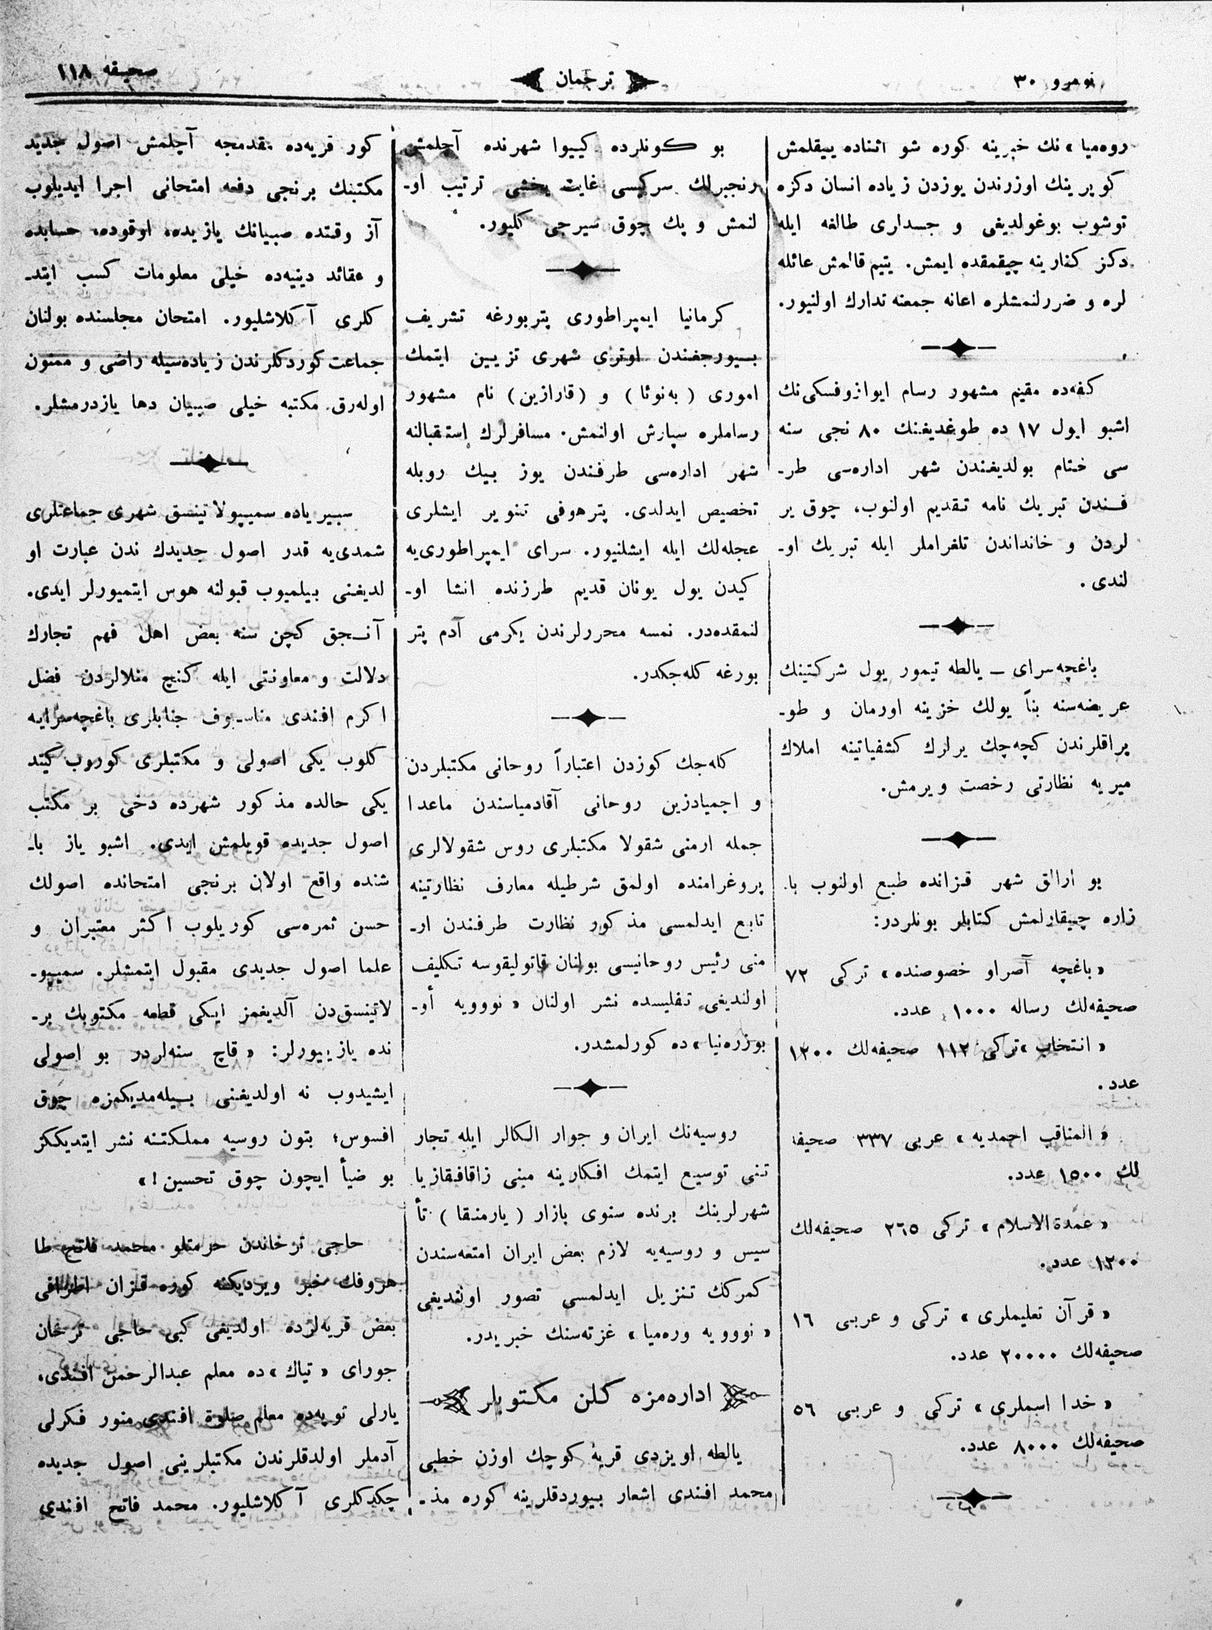 نومرو ٣٠
ترجمان
صحیفه ١١٨
رومیا» نك خبرینه كوره شو اثناده ییقلمش
كوپرینك اوزرندن یوزدن زیاده انسان دكزه
توشوب بوغولدیغی و جسدلری طالغه ایله
دكز كنارینه چیقمقده ایمش. یتیم قالمش عائله
لره و ضررلنمشلره اعانه جمعنه تدارك اولنیور.
كفه‌ده مقیم مشهور رسام ایوازوفسكی‌نك
اشبو ایول ١٧ ده طوغدیغنك ٨٠ نجی سنه
سی ختام بولدیغندن شهر اداره‌سی طر-
فندن تبریك نامه تقدیم اولنوب، چوق یر
لردن و خانداندن تلغراملر ایله تبریك او-
لندی.
باغچه‌سرای — یالطه تیمور یول شركتینك
عریضه‌سنه بناً یولك خزینه اورمان و طو-
پراقلرندن كچه‌چك یرلرك كشفیاتینه املاك
میریه نظارتی رخصت ویرمش.
بو ارالق شهر قزانده طبع اولنوب با-
زاره چیقارلمش كتابلر بونلردر:
«باغچه آصراو خصوصنده» تركی ٧٢
صحیفه‌لك رساله ١٠٠٠ عدد.
«انتخاب» تركی ١١٢ صحیفه‌لك ١٢٠٠
عدد.
«المناقب احمدیه» عربی ٣٣٧ صحیفه
لك ١٥٠٠ عدد.
«عمدة الاسلام» تركی ٢٦٥ صحیفه‌لك
١٢٠٠ عدد.
«قرآن تعلیملری» تركی و عربی ١٦
صحیفه‌لك ٢٠٠٠٠ عدد.
«خدا اسملری» تركی و عربی ٥٦
صحیفه‌لك ٨٠٠٠ عدد.
بو كونلرده كییوا شهرنده آچلمش
رنجبرلك سركیسی غایت یخشی ترتیب او-
لنمش و پك چوق سیرجی كلیور.
كرمانیا ایمپراطوری پتربورغه تشریف
بیورجغندن اوتری شهری تزیین ایتمك
اموری (به‌نوئا) و (قارازین) نام مشهور
رساملره سپارش اولنمش. مسافرلرك إستقبالنه
شهر اداره‌سی طرفندن یوز بیك روبله
تخصیص ایدلدی. پترهوفی تنویر ایشلری
عجله‌لك ایله ایشلنیور. سرای ایمپراطوری‌یه
كیدن یول یونان قدیم طرزنده انشا او-
لنمقده‌در. نمسه محررلرندن یكرمی آدم پتر
بورغه كله‌جكدر.
كله‌جك كوزدن اعتباراً روحانی مكتبلردن
و اجمیادزین روحانی آقادمیاسندن ماعدا
جمله ارمنی شقولا مكتبلری روس شقولالری
پروغرامنده اولمق شرطیله معارف نظارتینه
تابع ایدلمسی مذكور نظارت طرفندن ار-
منی رئیس روحانیسی بولنان قاتولیقوسه تكلیف
اولندیغی تفلیسده نشر اولنان «نووویه أو-
بوزره‌نیا» ده كورلمشدر.
روسیه‌نك ایران و جوار الكالر ایله تجار
تنی توسیع ایتمك افكارینه مبنی زاقافیقازیا
شهرلرینك برنده سنوی بازار (یارمنقا) تأ
سیس و روسیه‌یه لازم بعض ایران امتعه‌سندن
كمركك تنزیل ایدلمسی تصور اولندیغی
«نووویه وره‌میا» غزته‌سنك خبریدر.
اداره‌مزه كلن مكتوبلر
یالطه اویزدی قریهٔ كوچك اوزن خطیبی
محمد افندی اشعار بیوردقلرینه كوره مذ-
كور قریه‌ده مقدمجه آچلمش اصول جدید
مكتبنك برنجی دفعه امتحانی اجرا ایدیلوب
آز وقتده صبیانك یازیده، اوقوده، حسابده
و عقائد دینیه‌ده خیلی معلومات كسب ایتد-
كلری آكلاشلیور. امتحان مجلسنده بولنان
جماعت كوردكلرندن زیاده‌سیله راضی و ممنون
اوله‌رق مكتبه خیلی صبیان دها یازدرمشلر.
سبیریاده سمیپولاتینسق شهری جماعتلری
شمدی‌یه قدر اصول جدیدك ندن عبارت او
لدیغنی بیلمیوب قبولنه هوس ایتمیورلر ایدی.
آنجق كچن سنه بعض اهل فهم تجارك
دلالت و معاونتی ایله كنج منلالردن فضل
اكرم افندی جنابلری باغچه‌سرایه
كلوب یكی اصولی و مكتبلری كوروب كیتد
یكی حالده مذكور شهرده دخی بر مكتب
اصول جدیده قویلمش ایدی. اشبو یاز با-
شنده واقع اولان برنجی امتحانده اصولك
حسن ثمره‌سی كوریلوب اكثر معتبران و
علما اصول جدیدی مقبول ایتمشلر. سمیپو-
لاتینسق‌دن آلدیغمز ایكی قطعه مكتوبك بر-
نده یازییورلر: «قاچ سنه‌لردر بو اصولی
ایشیدوب نه اولدیغنی بیله‌مدیكمزه چوق
افسوس؛ بتون روسیه مملكتنه نشر ایتدیككز
بو ضیأ ایچون چوق تحسین!»
حاجی ترخاندن حرمتلو محمد فاتح طا
هروفك خبر ویردیكنه كوره قزان اطرافی
بعض قریه‌لرده اولدیغی كبی حاجی ترخان
جورای «تیاك» ده معلم عبدالرحمن افندی،
یارلی توبه‌ده معلم صلوة افندی منور فكرلی
آدملر اولدقلرندن مكتبلرینی اصول جدیده
چكدكلری آكلاشلیور. محمد فاتح افندی